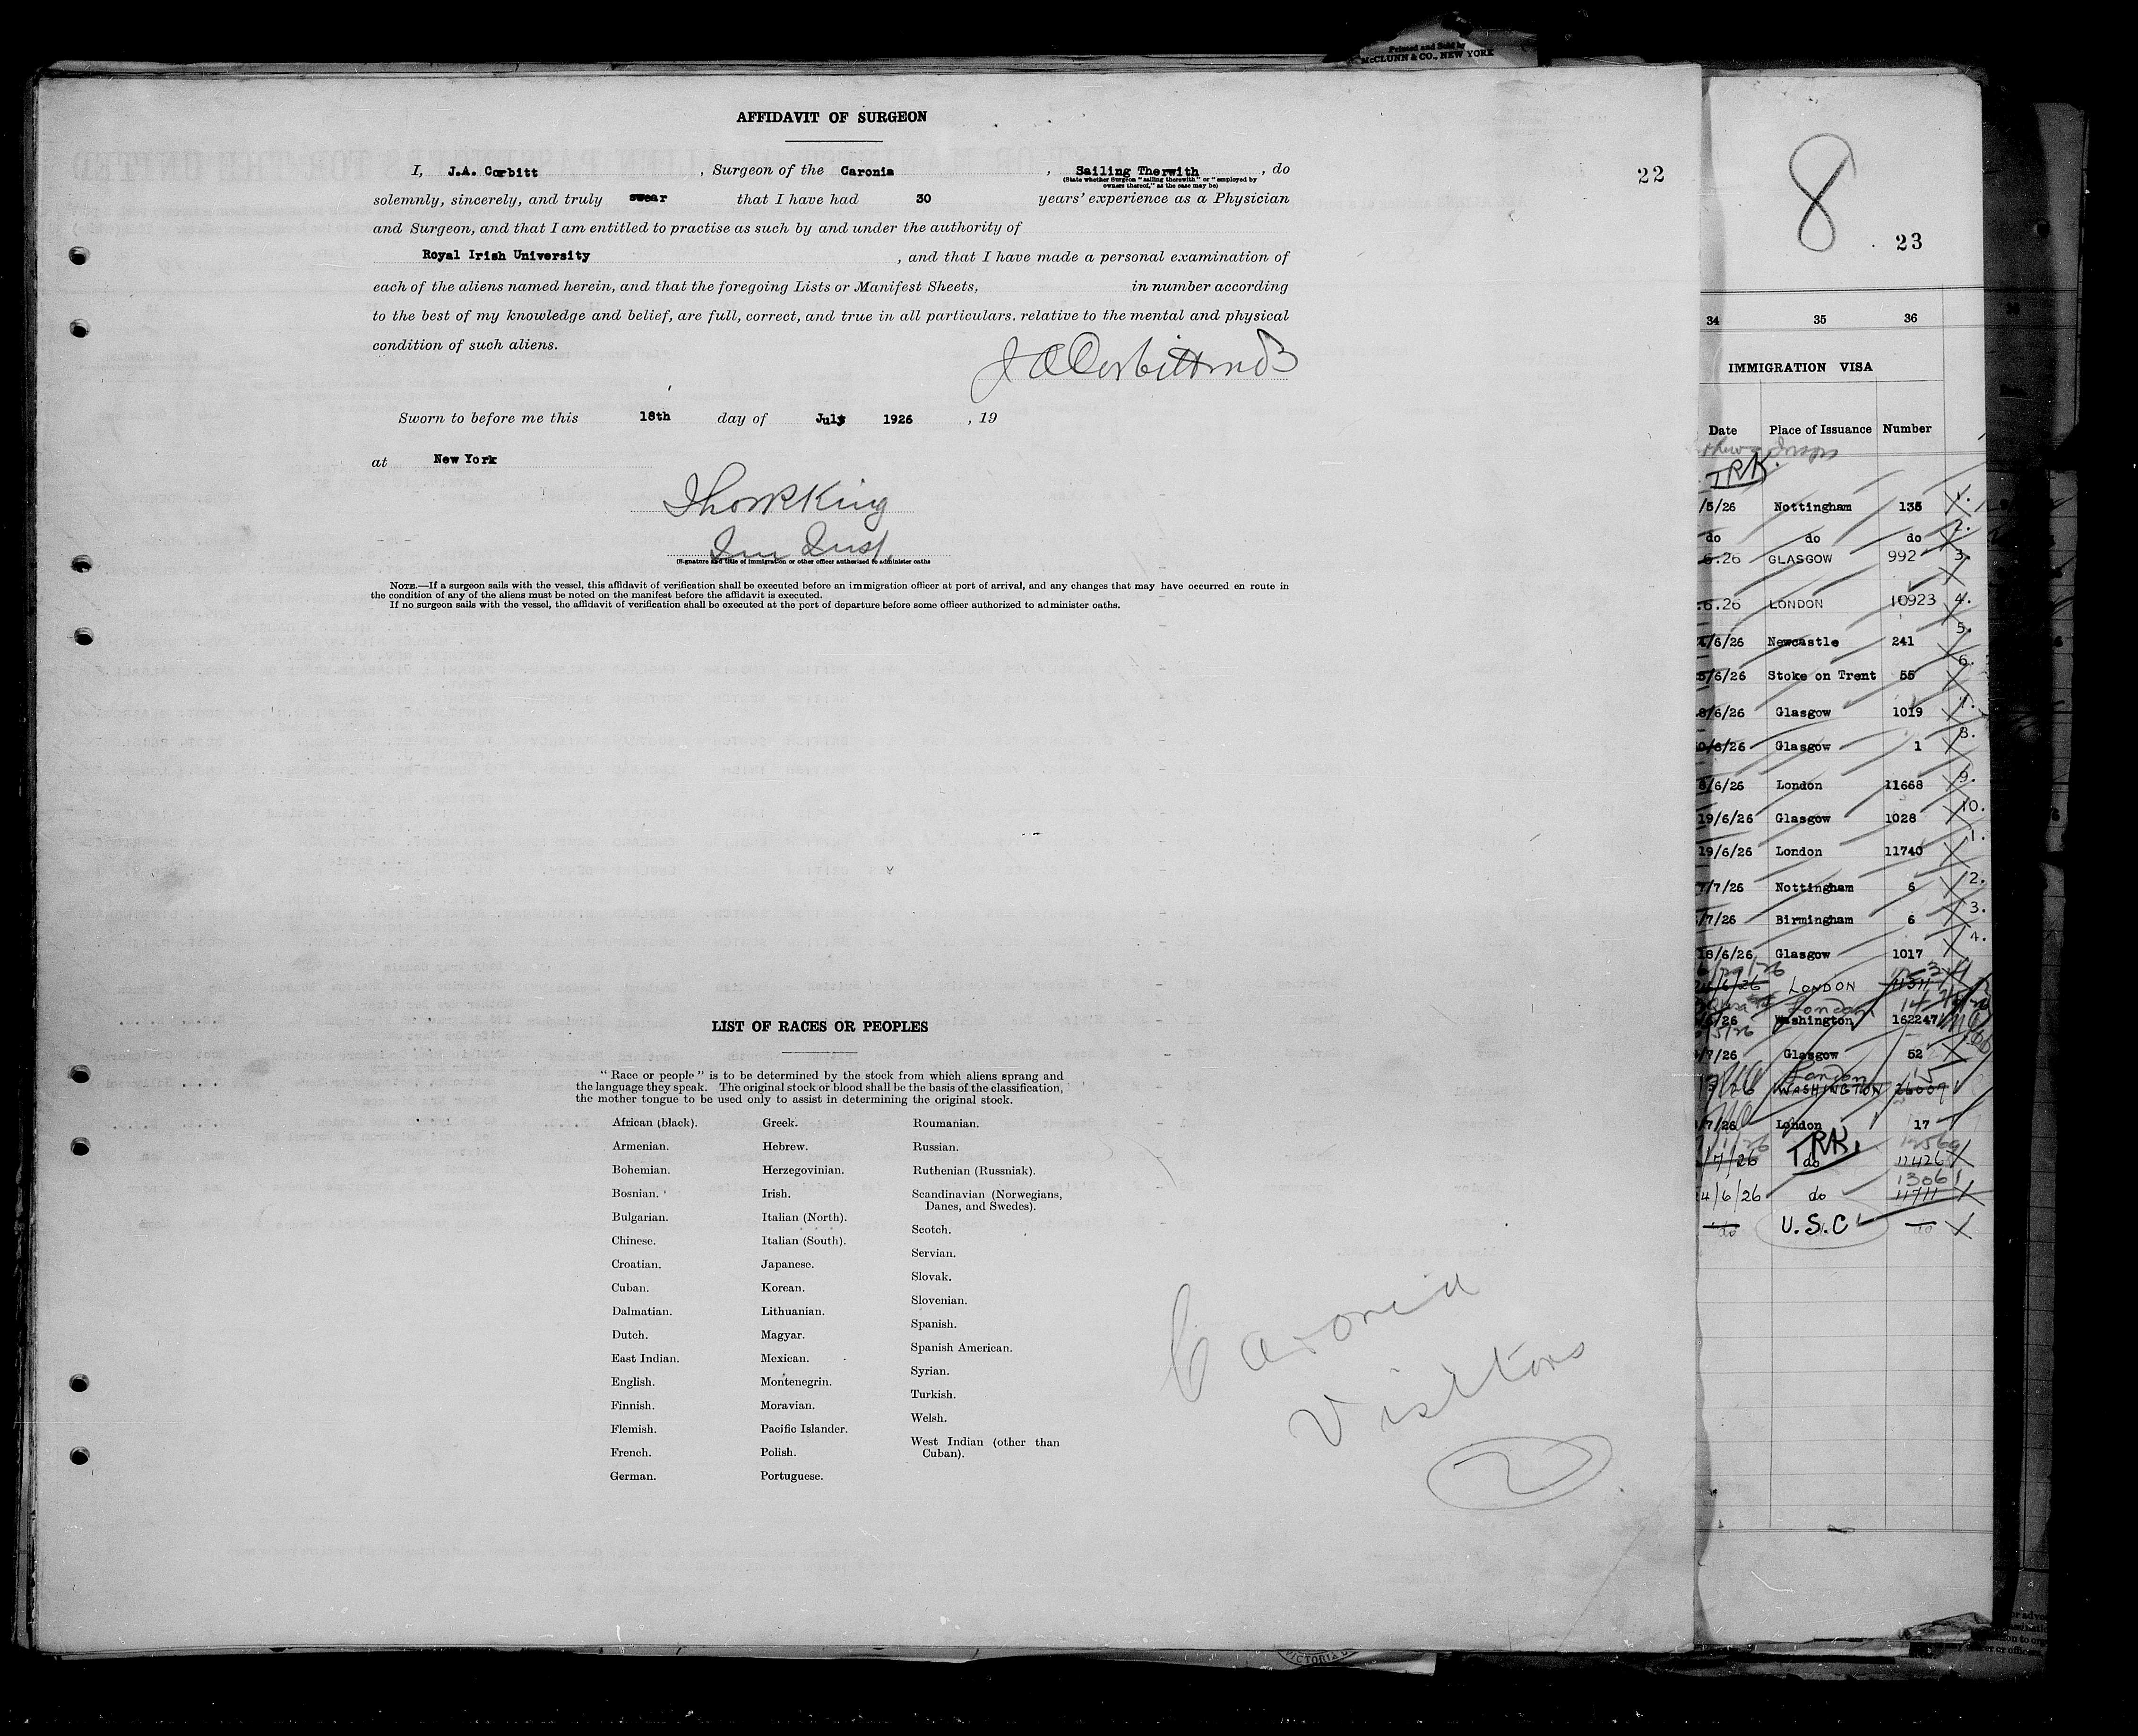 Printed and Sold by
McCLUNN & CO., NEW YORK
AFFIDAVIT OF SURGEON
I, J.A. Corbitt , Surgeon of the Caronia , Sailing Therwith , do
(State whether Surgeon "sailing therewith" or "employed by
owners thereof," as the case may be)
solemnly, sincerely, and truly swear that I have had 30 years' experience as a Physician
and Surgeon, and that I am entitled to practise as such by and under the authority of
Royal Irish University , and that I have made a personal examination of
each of the aliens named herein, and that the foregoing Lists or Manifest Sheets, in number according
to the best of my knowledge and belief, are full, correct, and true in all particulars. relative to the mental and physical
condition of such aliens.
J A Corbitt m B
Sworn to before me this 18th day of July 1926 , 19
at New York
Thos R King
Im Insp.
(Signature and title of immigration or other officer authorized to administer oaths
NOTE.—If a surgeon sails with the vessel, this affidavit of verification shall be executed before an immigration officer at port of arrival, and any changes that may have occurred en route in
the condition of any of the aliens must be noted on the manifest before the affidavit is executed.
If no surgeon sails with the vessel, the affidavit of verification shall be executed at the port of departure before some officer authorized to administer oaths.
LIST OF RACES OR PEOPLES
"Race or people" is to be determined by the stock from which aliens sprang and
the language they speak. The original stock or blood shall be the basis of the classification,
the mother tongue to be used only to assist in determining the original stock.
African (black).
Armenian.
Bohemian.
Bosnian.
Bulgarian.
Chinese.
Croatian.
Cuban.
Dalmatian.
Dutch.
East Indian.
English.
Finnish.
Flemish.
French.
German.
Greek.
Hebrew.
Herzegovinian.
Irish.
Italian (North).
Italian (South).
Japanese.
Korean.
Lithuanian.
Magyar.
Mexican.
Montenegrin.
Moravian.
Pacific Islander.
Polish.
Portuguese.
Roumanian.
Russian.
Ruthenian (Russniak).
Scandinavian (Norwegians,
Danes, and Swedes).
Scotch.
Servian.
Slovak.
Slovenian.
Spanish.
Spanish American.
Syrian.
Turkish.
Welsh.
West Indian (other than
Cuban).
Caronia
Visitors
2
22
8
23
34 35 36
IMMIGRATION VISA
Date Place of Issuance Number
TRK.
/5/26 Nottingham 135 1.
do do do 2.
.6.26 GLASGOW 992 3.
.6.26 LONDON 10923 4.
4/6/26 Newcastle 241 5.
5/6/26 Stoke on Trent 55 6.
8/6/26 Glasgow 1019 7.
0/6/26 Glasgow 1 8.
8/6/26 London 11668 9.
19/6/26 Glasgow 1028 10.
19/6/26 London 11740 1.
7/7/26 Nottingham 6 2.
/7/26 Birmingham 6 3.
18/6/26 Glasgow 1017 4.
LONDON
London
Washington 162247
/7/26 Glasgow 52
London 15
WASHINGTON 26009
/7/26 London 17
TRK.
/7/26 do 12426
13061
4/6/26 do 11711
do U.S.C do